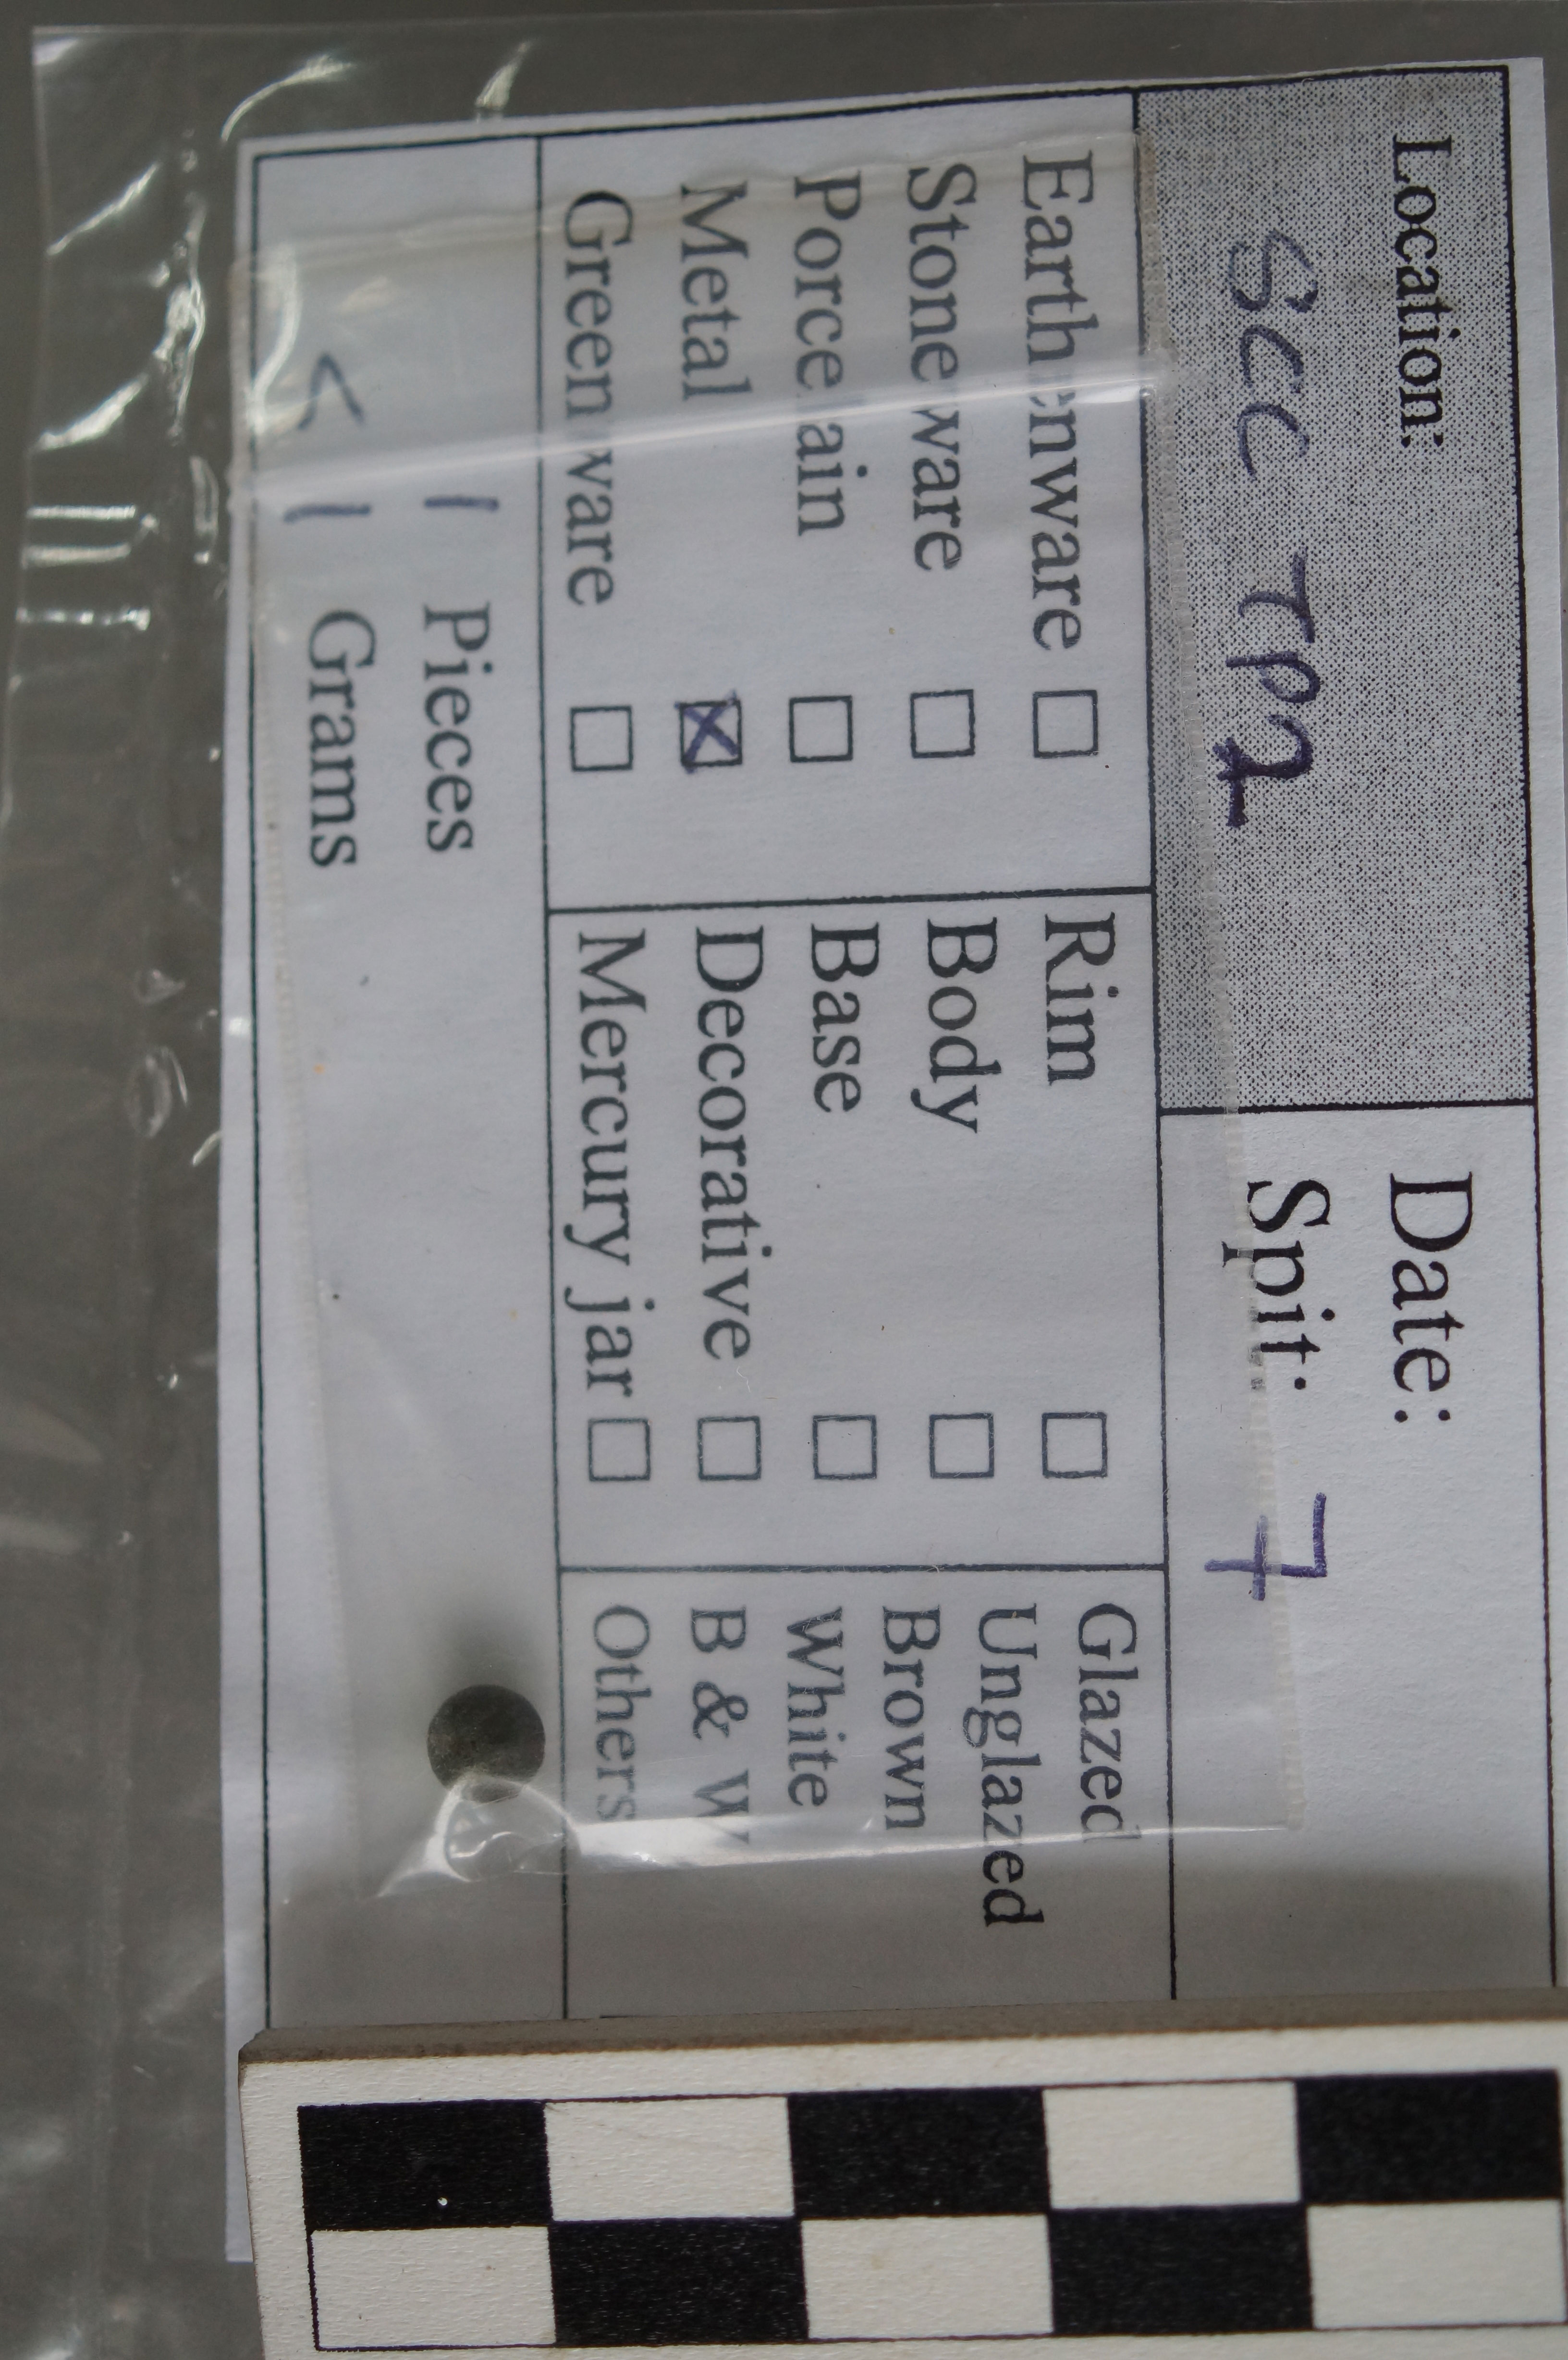 Location:
SCC TP2
Date:
Spit: 7
Earthenware ☐
Stoneware ☐
Porcelain ☐
Metal ☒
Greenware ☐
Rim ☐
Body ☐
Base ☐
Decorative ☐
Mercury jar ☐
Glazed
Unglazed
Brown
White
B & W
Others
1 Pieces
< 1 Grams